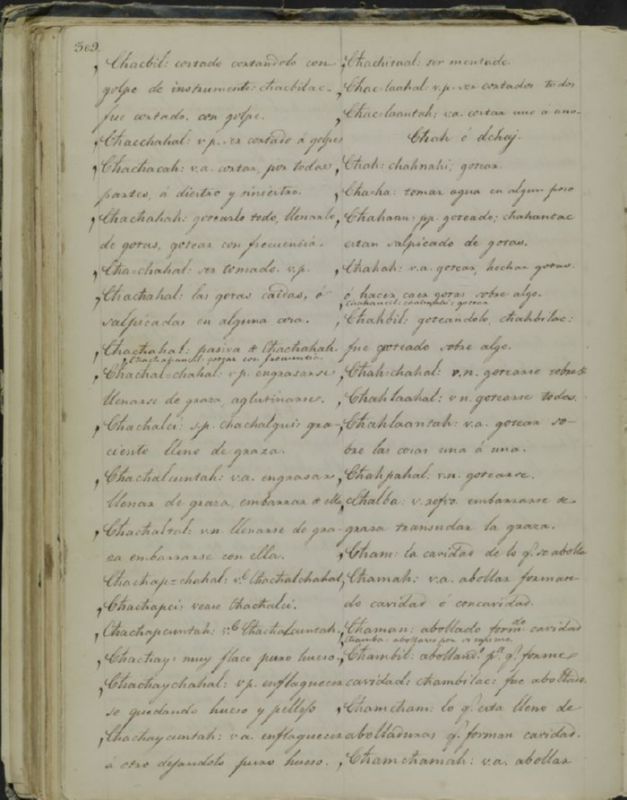 309.
Chacbil: cortado cortandolo con
golpe de instrumento: chacbilac.
fue cortado, con golpe.
Chacchahal: v.p. ser cortado á golpes
Chachacah: v.a. cortar, por todas
partes, á diestro y siniestro.
Chachahah: gotearlo todo, llenarlo
de gotas, gotear con frecuencia.
Cha=chahal: ser tomado. v.p.
Chachahal: las gotas caidas, ó
salpicadas en alguna cosa.
Chachahal: pasiva de Chachahah.
gotear con frecuencia.
Chachal=chahal: v.p. engrasarse
llenarse de graza aglutinarse.
Chachalci: s.p. chachalquis gra-
ciento lleno de graza.
Chachalcuntah: v.a. engrasar,
llenar de graza, embarrar de ella
Chachaltal: v.n. llenarse de gra-
za embarrarse con ella.
Chachap=chahal: v.e Chachalchahal
Chachapci: vease Chachalci.
Chachapcuntah: v.e Chachalcuntah.
Chachay: muy flaco puro hueso.
Chachaychahal: v.p. enflaquecer
se quedando hueso y pellejo
Chachaycuntah: v.a. enflaquecer
á otro dejandolo puro hueso.
Chachiraal: ser mentado.
Chac-laahal: v.p. ser cortados todos
Chac-laantah: v.a. cortar uno á uno.
Chah ó dchaj.
Chah: chahnahi; gotear.
Cha-ha: tomar agua en algun poso
Chahaan: pp. goteado; chahantac
estan salpicado de gotas.
Chahah: v.a. gotear, hechar gotas.
ó hacer caer gotas sobre algo.
Chahbil: goteandolo, chahbilac:
fue goteado sobre algo.
Chah-chahal: v.n. gotearse sobre
Chahlaahal: v.n. gotearse todas.
Chahlaantah: v.a. gotear so-
bre las cosas una á una.
Chahpahal: v.n. gotearse.
Chalba: v. refvo. embarrarse de
graza transudar la graza.
Cham: la cavidad de lo q.e se abolla
Chamah: v.a. abollar forman-
do cavidad ó concavidad.
Chaman: abollado form.do cavidad
Chamba: abollarse por si mismo.
Chambil: abolland.o p.a q.e forme
cavidad: chambilac: fue abollado.
Chamcham: lo q.e esta lleno de
abolladuras q.e forman cavidad.
Chamchamah: v.a. abollar